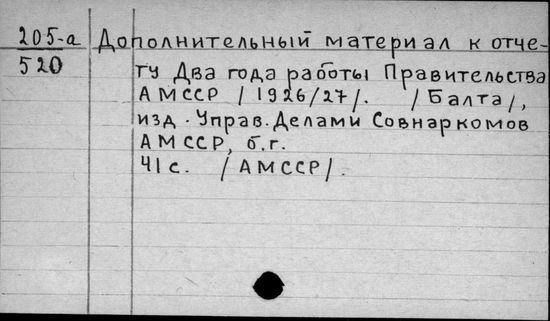 205-а Дополнительный материал к отче-
520 ту Два года работы Правительства
АМССР /1926/27/. /Балта/,
изд. Управ. Делами Совнаркомов
АМССР, б.г.
41 с. /АМССР/.